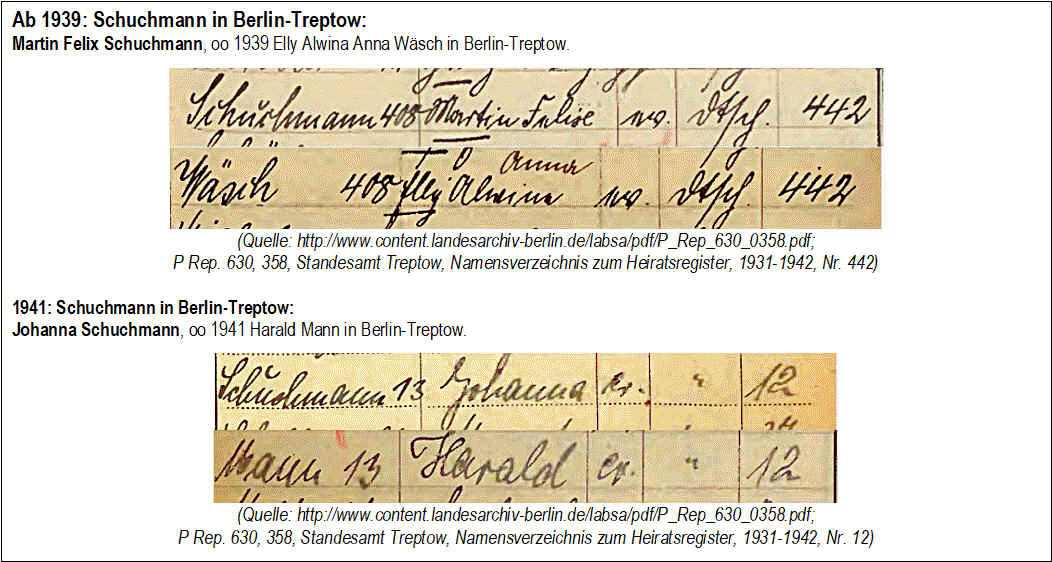 Ab 1939: Schuchmann in Berlin-Treptow:
Martin Felix Schuchmann, oo 1939 Elly Alwina Anna Wäsch in Berlin-Treptow.
Schuchmann 408 Martin Felix ev. dtsch. 442
Anna
Wäsch 408 Elly Alwine ev. dtsch. 442
(Quelle: http://www.content.landesarchiv-berlin.de/labsa/pdf/P_Rep_630_0358.pdf;
P Rep. 630, 358, Standesamt Treptow, Namensverzeichnis zum Heiratsregister, 1931-1942, Nr. 442)
1941: Schuchmann in Berlin-Treptow:
Johanna Schuchmann, oo 1941 Harald Mann in Berlin-Treptow.
Schuchmann 13 Johanna ev. " 12
Mann 13 Harald ev. " 12
(Quelle: http://www.content.landesarchiv-berlin.de/labsa/pdf/P_Rep_630_0358.pdf;
P Rep. 630, 358, Standesamt Treptow, Namensverzeichnis zum Heiratsregister, 1931-1942, Nr. 12)